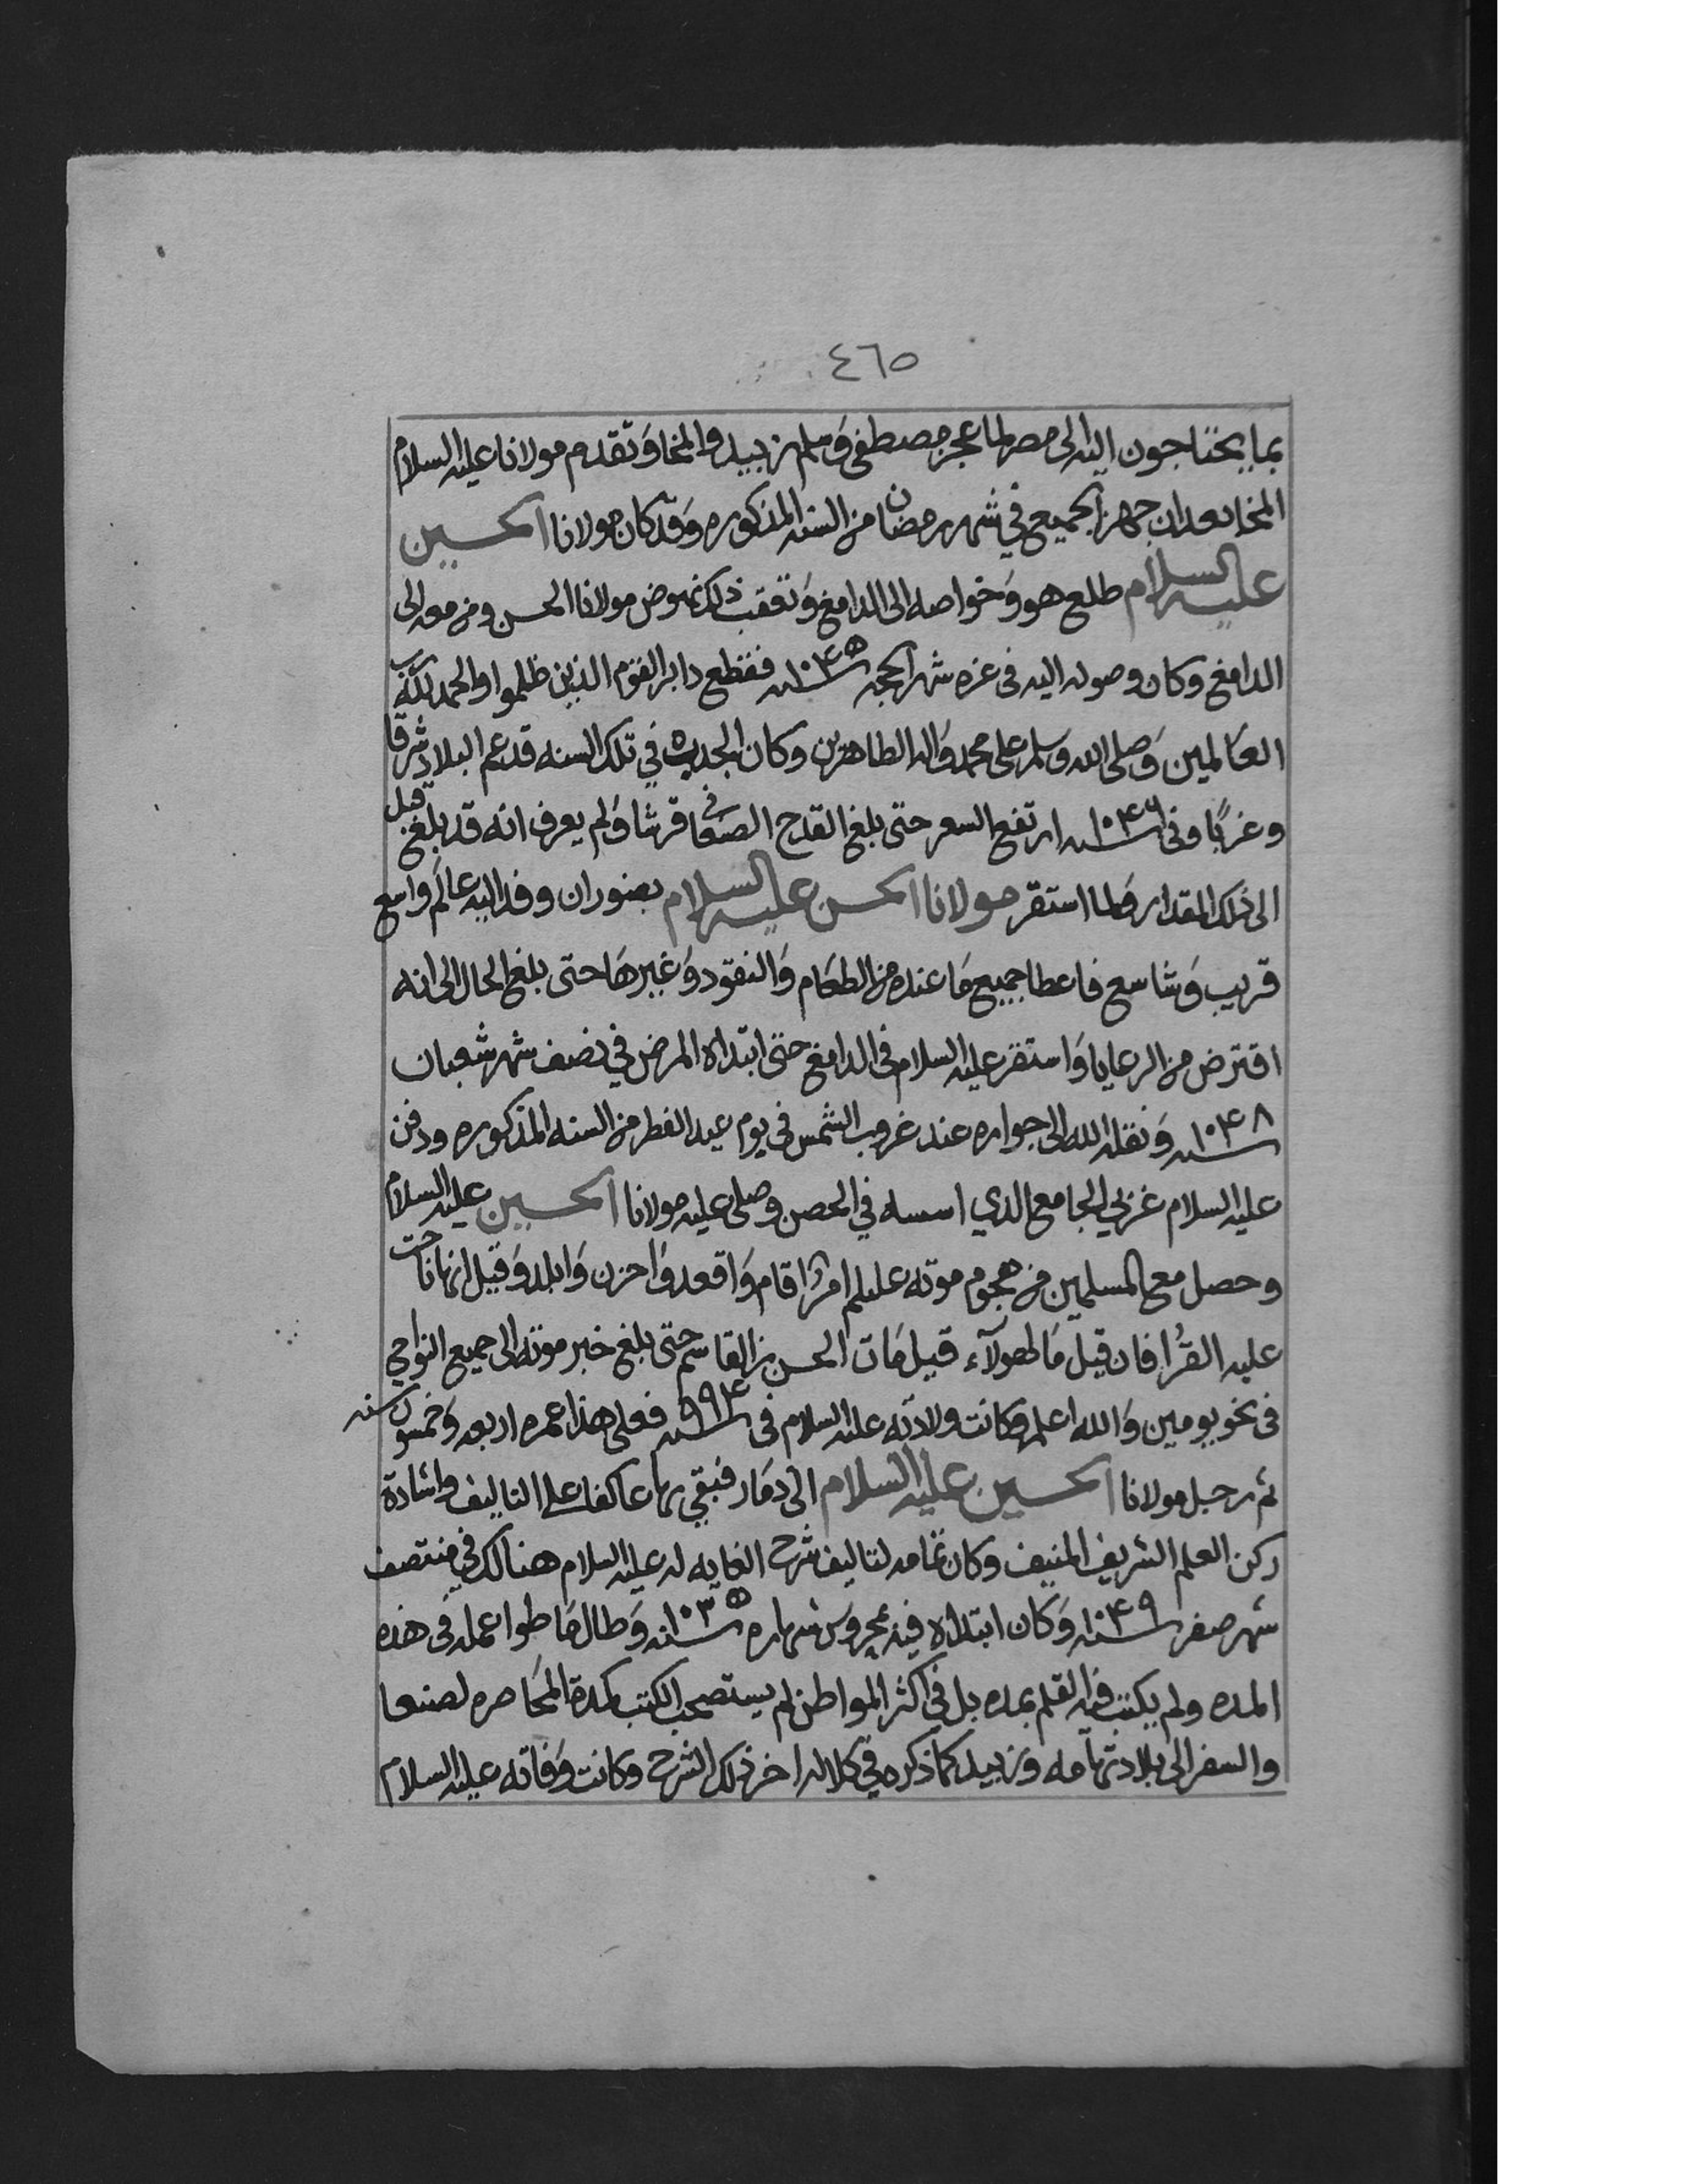 ٤٦٥
بما يحتاجون اليه الى مصر لما عجز مصطفى وسلم زبيد والمخا وتقدم مولانا عليه السلام
المخا بعد ان جهز الجميع في شهر رمضان من السنه المذكوره وقد كان مولانا الحسين
عليه السلام طلع هو وخواصه الى الدامغ وتعقب ذلك نهوض مولانا الحسن ومن معه الى
الدامغ وكان وصوله اليه في غره شهر الحجه سنه ١٠٤٥ فقطع دابر القوم الذين ظلموا والحمد لله رب
العالمين وصلى الله وسلم على محمد واله الطاهرين وكان الجدب في تلك السنه قد عم البلاد شرقا
وغربًا وفي سنه ١٠٤٦ ارتفع السعر حتى بلغ القدح الصنعاني قرشا ولم يعرف انه قد بلغ قبل
الى ذلك المقدار فلما استقر مولانا الحسن عليه السلام بضوران وفد اليه عالم واسع
قريب وشاسع فاعطا جميع ما عنده من الطعام والنقود وغيرها حتى بلغ الحال الى انه
اقترض من الرعايا واستقر عليه السلام في الدامغ حتى ابتداه المرض في نصف شهر شعبان
سنه ١٠٤٨ ونقله الله الى جواره عند غروب الشمس في يوم عيد الفطر من السنه المذكوره ودفن
عليه السلام غربي الجامع الذي اسسه في الحصن وصلى عليه مولانا الحسين عليه السلام
وحصل مع المسلمين من هجوم موته عليلم امرٌ اقام واقعد واحزن وابلد وقيل انها ناحت
عليه القُرا فان قيل ما لهولآء قيل مات الحسن بن القاسم حتى بلغ خبر موته الى جميع النواحي
في نحو يومين والله اعلم وكانت ولادته عليه السلام في سنه ٩٩٤ فعلى هذا عمره اربعه وخمسون سنه
ثم رحل مولانا الحسين عليه السلام الى ذمار فبقي بها عاكفا على التاليف واشادة
ركن العلم الشريف المنيف وكان تمامه لتاليف شرح الغايه له عليه السلام هنالك في منتصف
شهر صفر سنه ١٠٤٩ وكان ابتداه فيه بمحروس شهاره سنه ١٠٣٥ وطال ما طوا عمله في هذه
المده ولم يكتب فيه القلم بمده بل في اكثر المواطن لم يستصحب الكتب كمدة المحاصره لصنعا
والسفر الى بلاد تهامه وزبيد كما ذكره في كلاله اخر ذلك الشرح وكانت وفاته عليه السلام